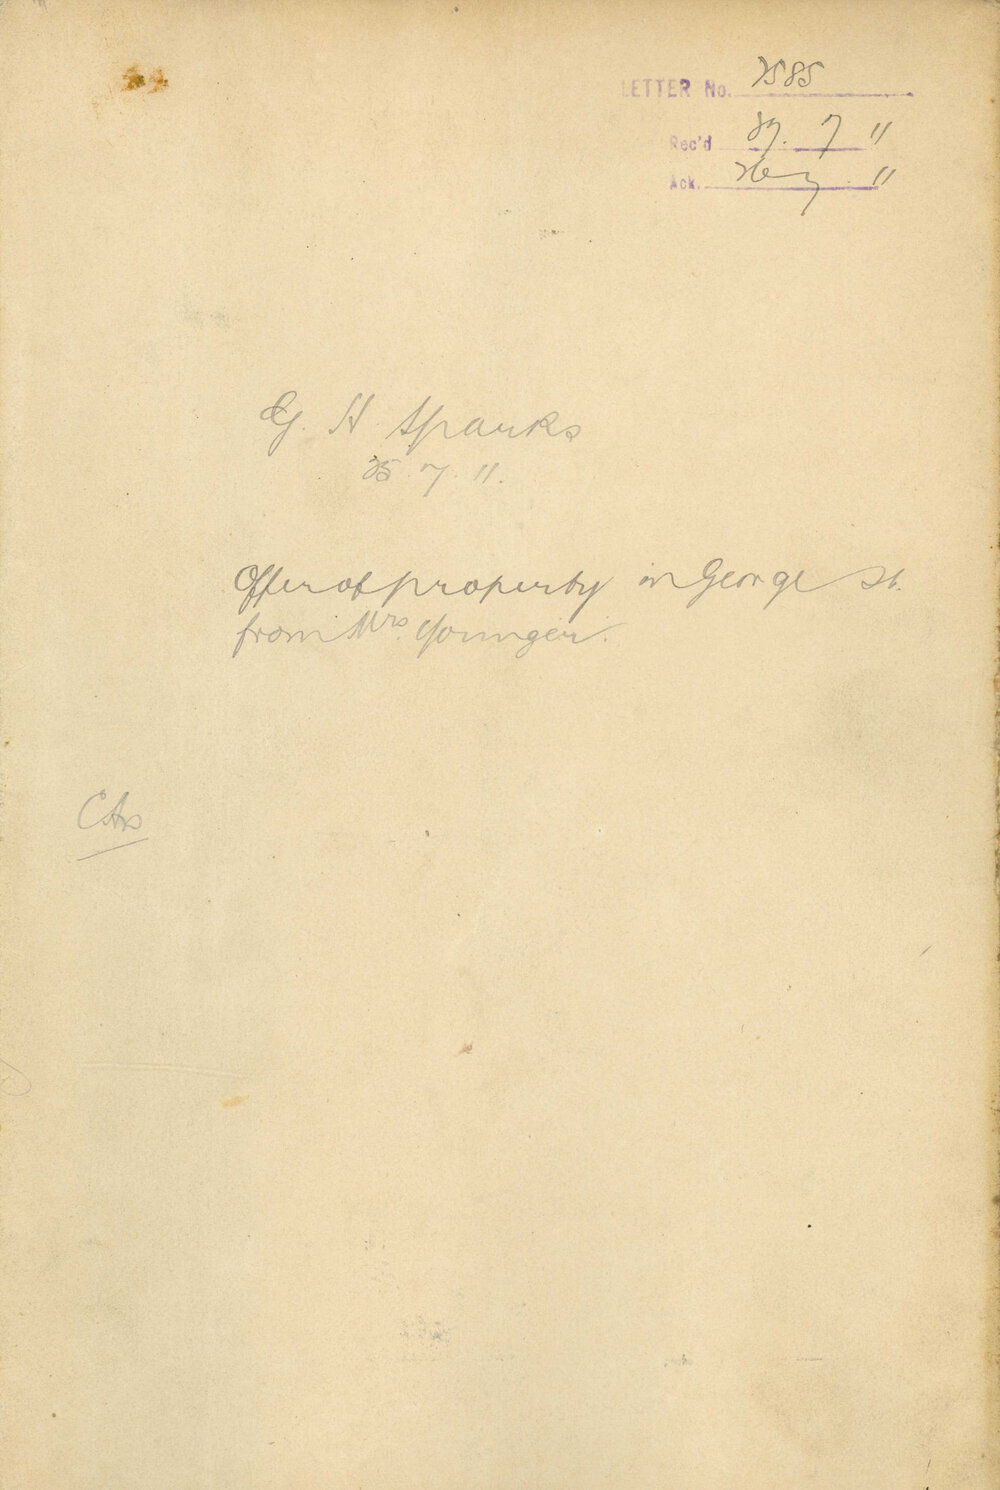 LETTER No. 2585
Rec'd 27. 7 11
Ack. 7 11
G. H Sparks
25. 7. 11.
Offer of property in George St.
from Mrs. Younger.